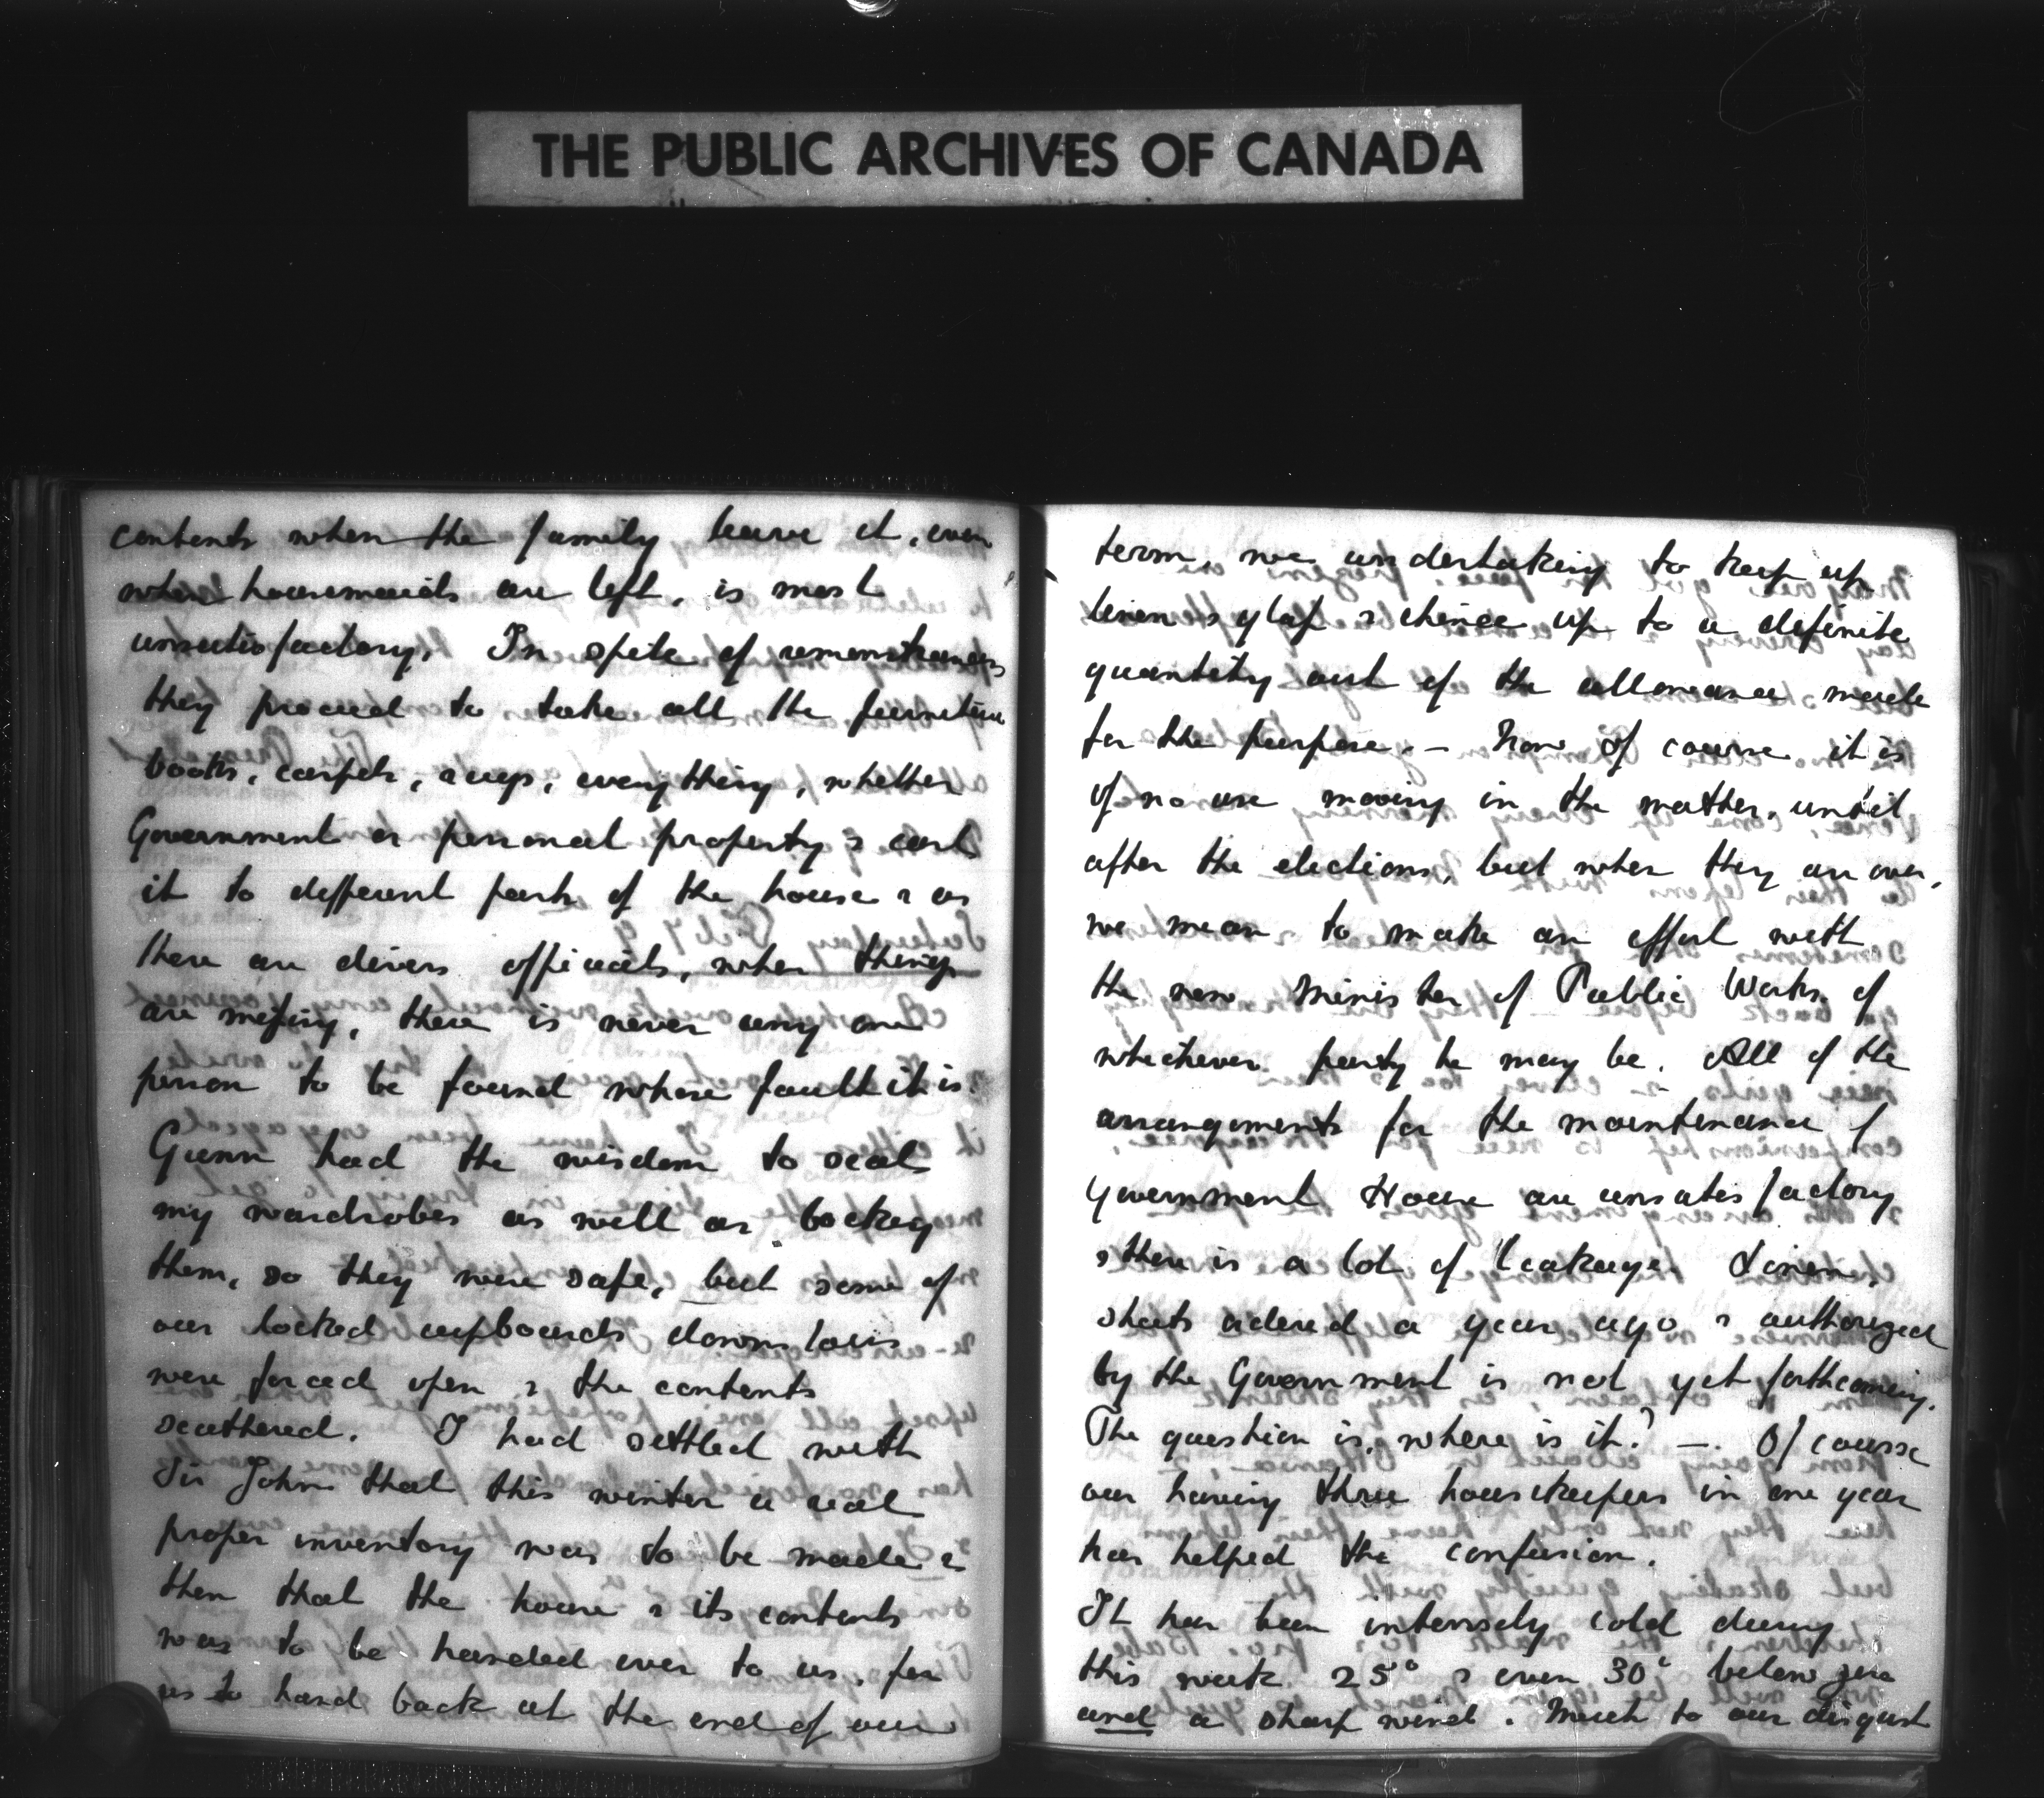 THE PUBLIC ARCHIVES OF CANADA
contents when the family leave it, even
when housemaids are left, is most
unsatisfactory. In spite of remonstrances
they proceed to take all the furniture
books, carpets, rugs, everything, whether
Government or personal property & cart
it to different parts of the house & as
there are divers officials, when things
are missing, there is never any one
person to be found whose fault it is.
Gunn had the wisdom to seal
my wardrobes as well as locking
them, so they were safe, but some of
our locked cupboards downstairs
were forced open & the contents
scattered. I had settled with
Sir John that this winter a real
proper inventory was to be made &
then that the house & its contents
was to be handed over to us, for
us to hand back at the end of our
term, we undertaking to keep up
linen & glass & china up to a definite
quantity out of the allowance made
for the purpose. – Now of course it is
of no use moving in the matter, until
after the elections, but when they are over,
we mean to make an effort with
the new Minister of Public Works of
whichever party he may be. All of the
arrangements for the maintenance of
Government House are unsatisfactory
& there is a lot of leakage. Linen,
sheets ordered a year ago & authorized
by the Government is not yet forthcoming.
The question is, where is it? — Of course
our having three housekeepers in one year
has helped the confusion.
It has been intensely cold during
this week 25° & even 30° below zero
and a sharp wind. Much to our disgust